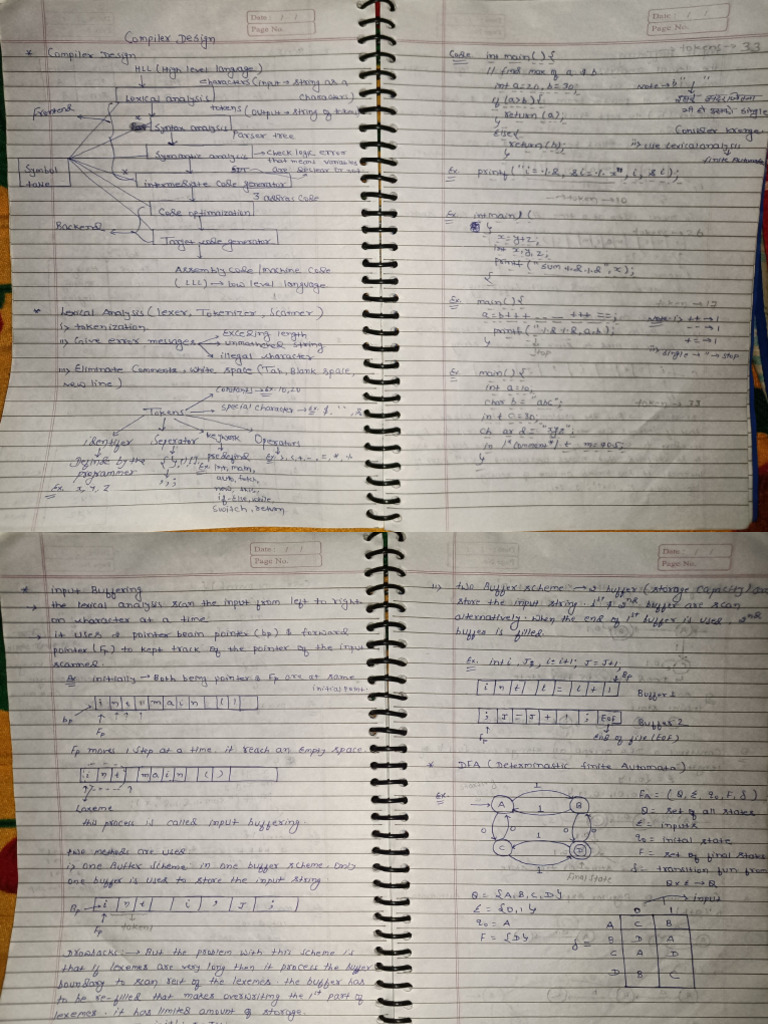 Date : / /
Page No.
Compiler Design
* Compiler Design
HLL (High level language)
characters (input → string as a
characters)
Lexical analysis
tokens (output → string of
Frontend
Syntax analysis
Parser tree
Semantic analysis → check logic error
that means variable
are
Symbol
table
Intermediate code generator
3 address code
Code optimization
Backend
Target code generator
Assembly code / machine code
(LLL) → low level language
* Lexical Analysis (lexer, Tokenizer, Scanner)
i> tokenization
ii> Give error mesages
Exceeding length
unmatched string
illegal character
iii> Eliminate Comments & white space (Tab, Blank space,
new line)
constant → Ex. 10, 20
Tokens
special character → Ex. $, " ", &
identifier Seperator keyword Operators
Define by the
programmer
Ex. x, y, z
predefined
Ex. int, main,
auto, fetch,
new, else,
if-else, while,
switch, return
Date : / /
Page No.
tokens → 33
Code int main() {
// find max of a & b
int a=20, b=30;
if (a>b) {
return (a);
}
else {
return (b);
}
Note →
Consider
use lexical analysis
finite Automata
Ex. printf("i=%d, &i=%x", i, &i);
token → 10
Ex int main (
{
x=y+z;
int x,y,z;
print("sum %d %d", x);
Ex. main() {
printf("%d %d, a,b);
}
Stop
Note i> ++ → 1
-- → 1
+= → 1
ii> single → " → stop
Ex main() {
int a=10;
char b = "abc";
in t c=30;
ch ar d = "xyz";
in /*comment*/ t m=40.5;
}
Date : / /
Page No.
* input Buffering
→ the lexical analysis scan the input from left to right
on character at a time
→ it uses 2 pointer begin pointer (bp) & forward
pointer (Fp) to kept track of the pointer of the input
scanned.
Ex initially → Both being pointer & Fp are at same
initial
i n t m a i n ( )
bp
Fp
Fp moves 1 step at a time. it reach an Empty space
i n t m a i n ( )
Lexeme
this process is called input buffering.
two methods are used
i> one Buffer scheme in one buffer scheme. Only
one buffer is used to store the input string
Bp i n t i , J ;
Fp
tokens
Drawback: → But the problem with this scheme is
that if lexemes are very long then it process the buffer
boundary to scan rest of the lexemes the buffer has
to be re-filled that makes overwriting the 1st part of
lexemes. it has limited amount of storage.
Date : / /
Page No.
ii) two Buffer scheme → 2 buffer (storage capacity)
store the input string. 1st & 2nd buffer are scan
alternatively. when the end of 1st buffer is used, 2nd
buffer is filled.
Ex. int i, J; i=i+1; J=J+1;
Bp
i n t i = i + 1
Buffer 1
; J = J + 1 ; EOF
Buffer 2
Fp
End of file (EOF)
* DFA (Deterministic finite Automata)
Ex.
A B C D
0 1
final state
FA = (Q, Σ, q0, F, δ)
Q = set of all states
Σ = inputs
q0 = initial state
F = set of final state
δ = transition fun from
Q × Σ → Q
Input
Q = {A, B, C, D}
Σ = {0, 1}
q0 = A
F = {D}
δ =
0
A C B
B D A
C A D
D B C